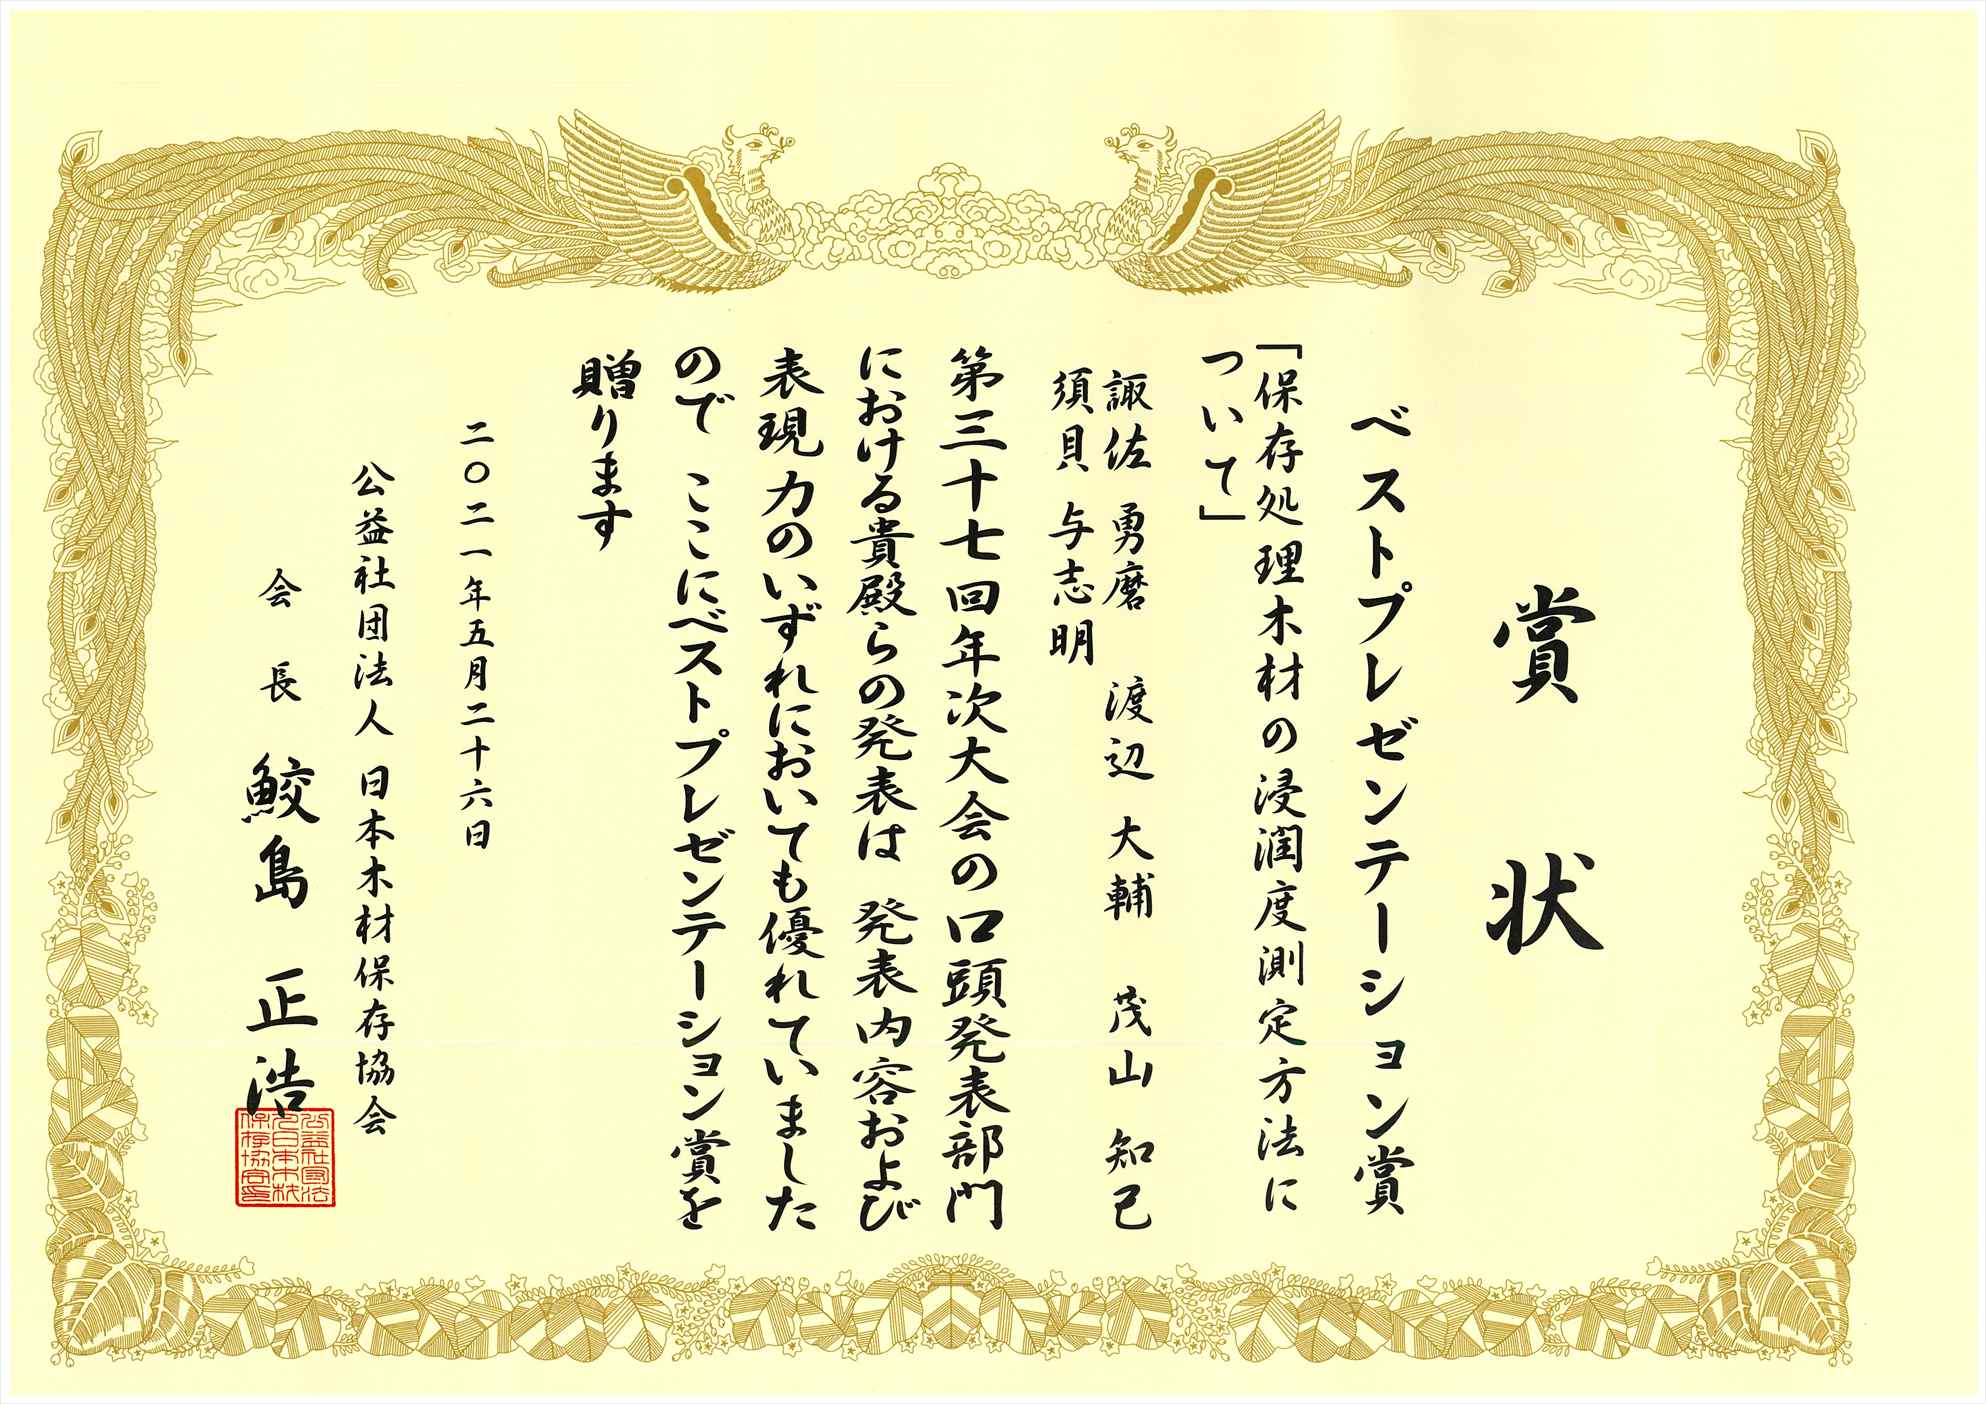 賞状
ベストプレゼンテーション賞
「保存処理木材の浸潤度測定方法に
ついて」
諏佐 勇磨 渡辺 大輔 茂山 知己
須貝 与志明
第三十七回年次大会の口頭発表部門
における貴殿らの発表は 発表内容および
表現力のいずれにおいても優れていました
ので ここにベストプレゼンテーション賞を
贈ります
二〇二一年五月二十六日
公益社団法人 日本木材保存協会
会長 鮫島 正浩
公益社団法
人日本木材
保存協会長